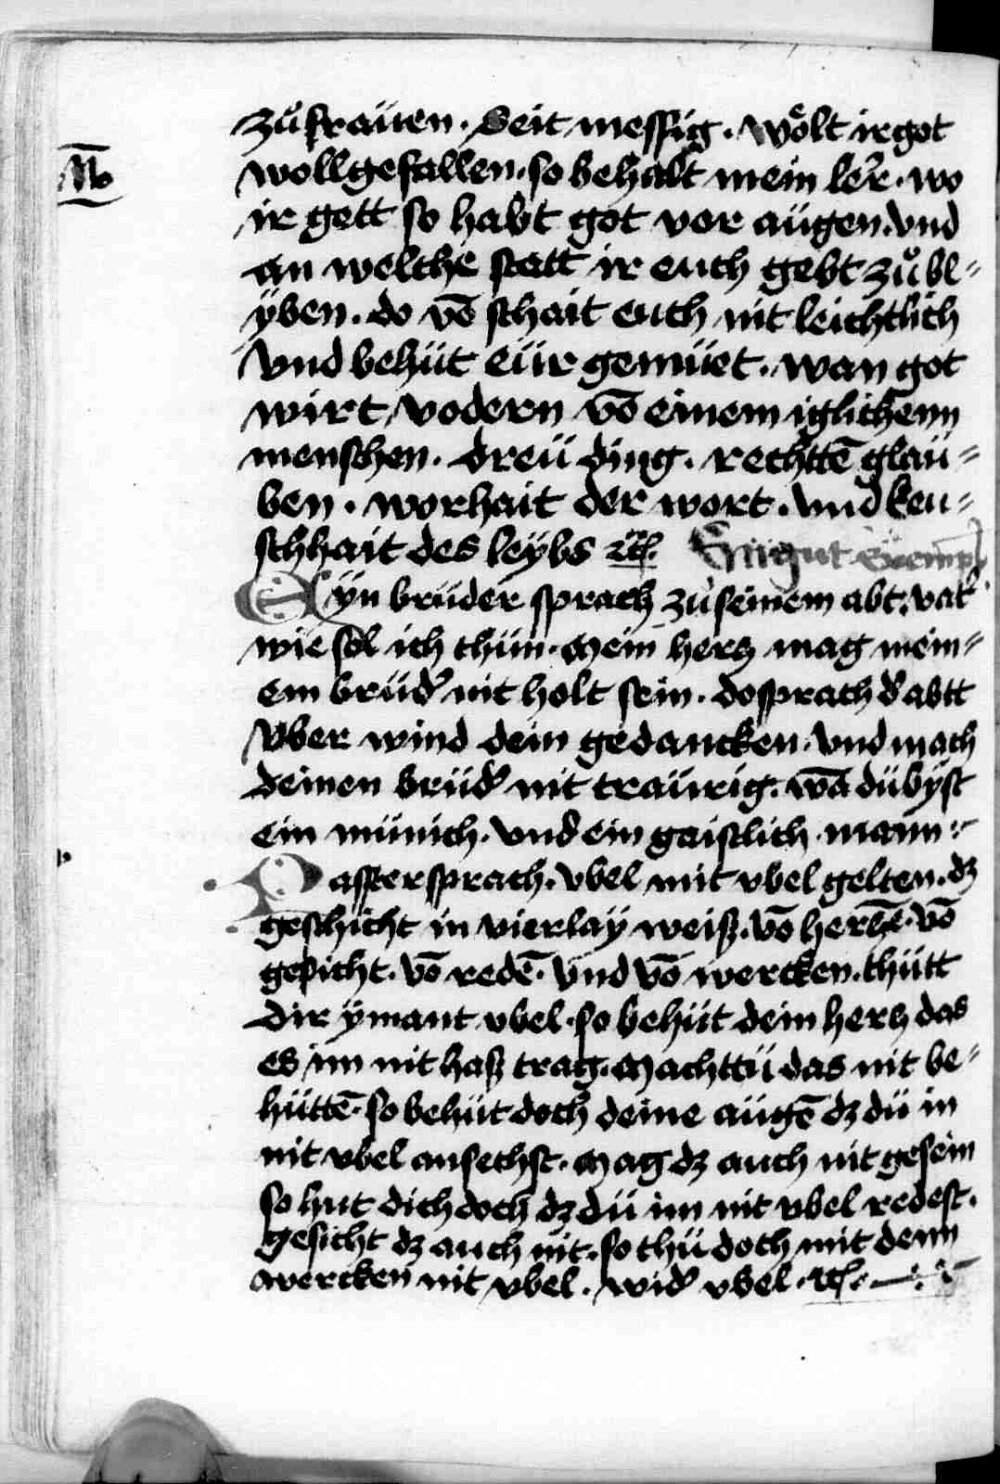 zuͦ frawen . Seit messig . woͤlt ir got
Nͦ
wollgefallen . so behalt mein ler . wo
ir gett so habt got vor augen . vnd
an welche statt ir euch gebt zuͦ bl=
ÿben . do vō schait euch nit leichtlich
vnd behüt eür gemüet . wan got
wirt vodern vō einem iglichenn
menschen . dreü ding . rechttē glau=
ben . worhait der wort . vnd keu=
schhait des leÿbs ꝛc̄. Ein gut Exempl
Eÿn brüder sprach zuͦ seinem abt . vat̓
wie sol ich thün . Mein hercz mag mein=
em brüd̓ nit holt sein . do sprach d̓ abtt
vber wind dein gedancken . vnd mach
deinen brüd̓ nit traürig . wā dü bÿst
ein münich . vnd ein gaistlich mann :~
Pastter sprach . vbel mit vbel gelten . dz
geschicht in vierlaÿ weiß . vō herczē . vō
gesicht . vō redē . vnd vō wercken . thütt
dir ÿmant vbel . so behüt dein hercz das
es im nit haß trag . Machttü das nit be=
hüttē . so behüt doch deine augē dz dü in
nit vbel ansechst . Mag dz auch nit gesein
so hut dich doch dz dü im nit vbel redest .
gesicht dz auch nit . so thü doch mit denn
wercken nit vbel . wid̓ vbel . ꝛc̄.